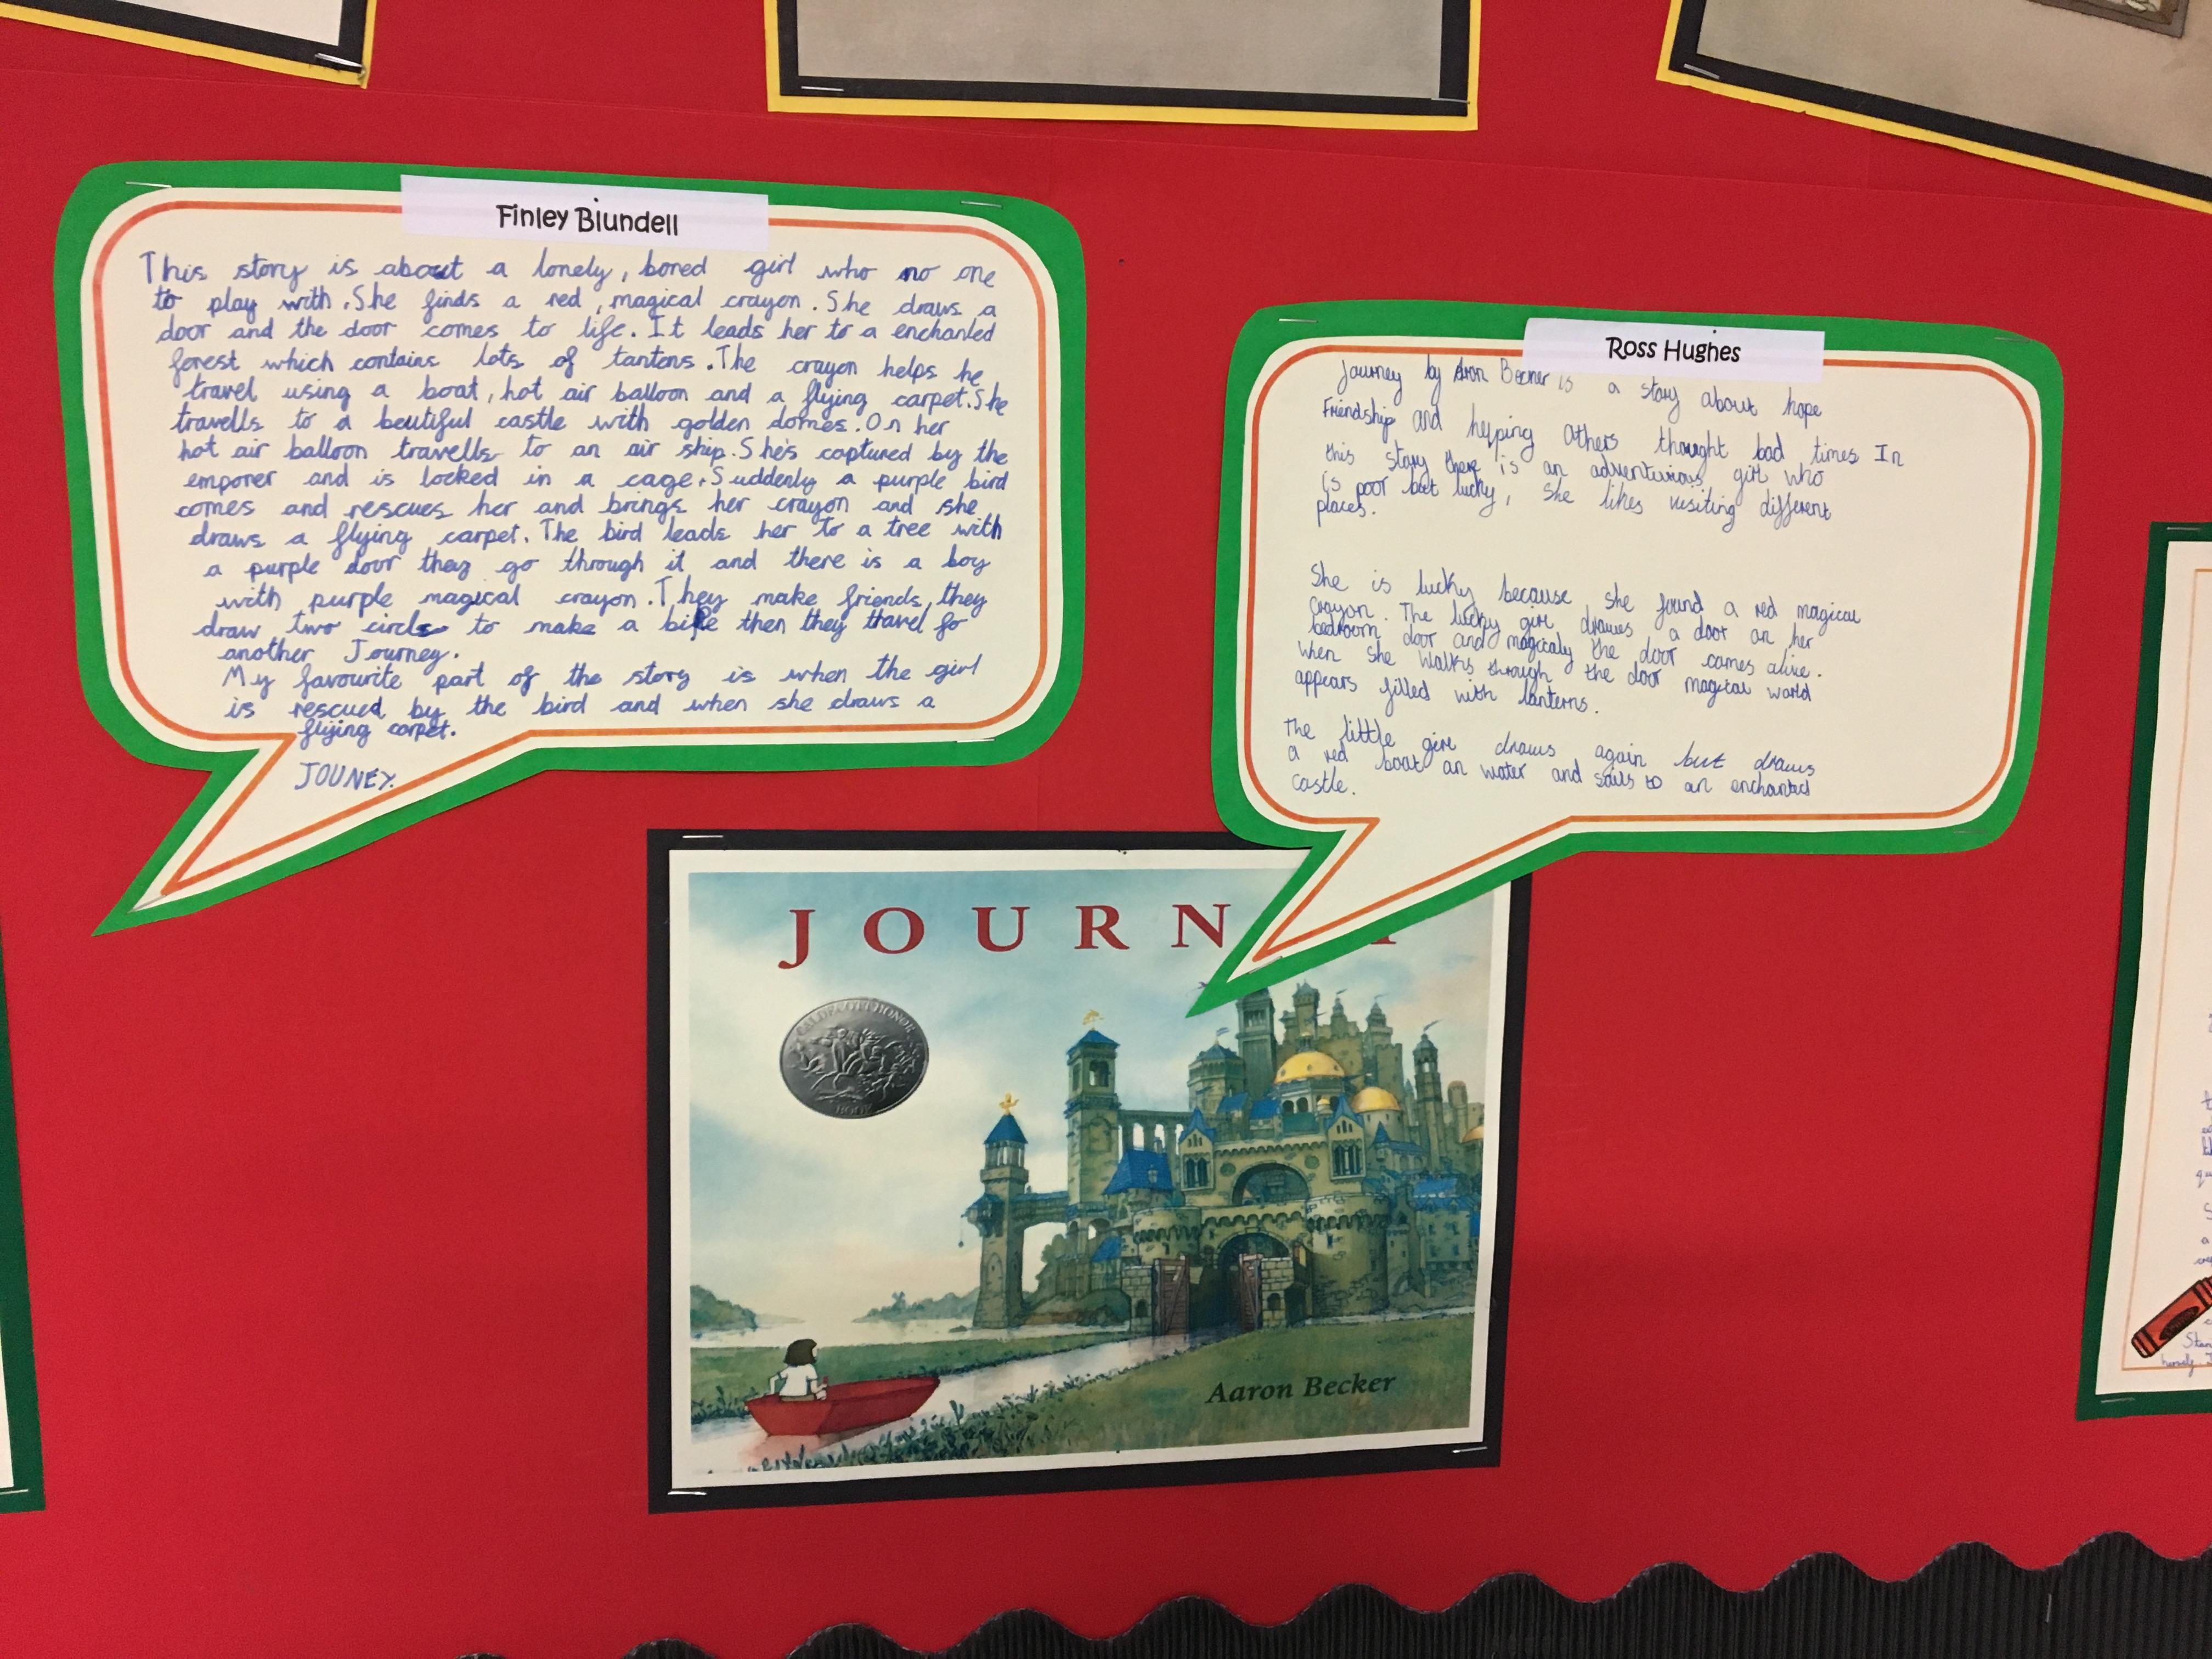 Finley Blundell
This story is about a lonely, bored girl who no one
to play with. She finds a red, magical crayon. She draws a
door and the door comes to life. It leads her to a enchanted
forest which contains lots of tantens. The crayon helps he
travel using a boat, hot air balloon and a flying carpet. She
travells to a beutiful castle with golden domes. On her
hot air balloon travells to an air ship. She's captured by the
emporer and is locked in a cage. Suddenly a purple bird
comes and rescues her and brings her crayon and she
draws a flying carpet. The bird leads her to a tree with
a purple door they go through it and there is a boy
with purple magical crayon. They make friends, they
draw two circls to make a bike then they travel fo
another Journey.
My favourite part of the story is when the girl
is rescued by the bird and when she draws a
flying carpet.
JOUNEY.
Ross Hughes
Journey by Aron Becner is a story about hope
Friendship and helping others thought bad times In
this story there is an adventurious girl who
is poor but lucky, she likes visiting different
places.
She is lucky because she found a red magical
crayon. The lucky girl drawes a door an her
bedroom door and magicaly the door comes alive.
When she walks through the door magical world
appears filled with lanterns.
The little girl draws again but draws
a red boat an water and sails to an enchanted
castle.
JOURN
CALDECOTT HONOR
BOOK
Aaron Becker